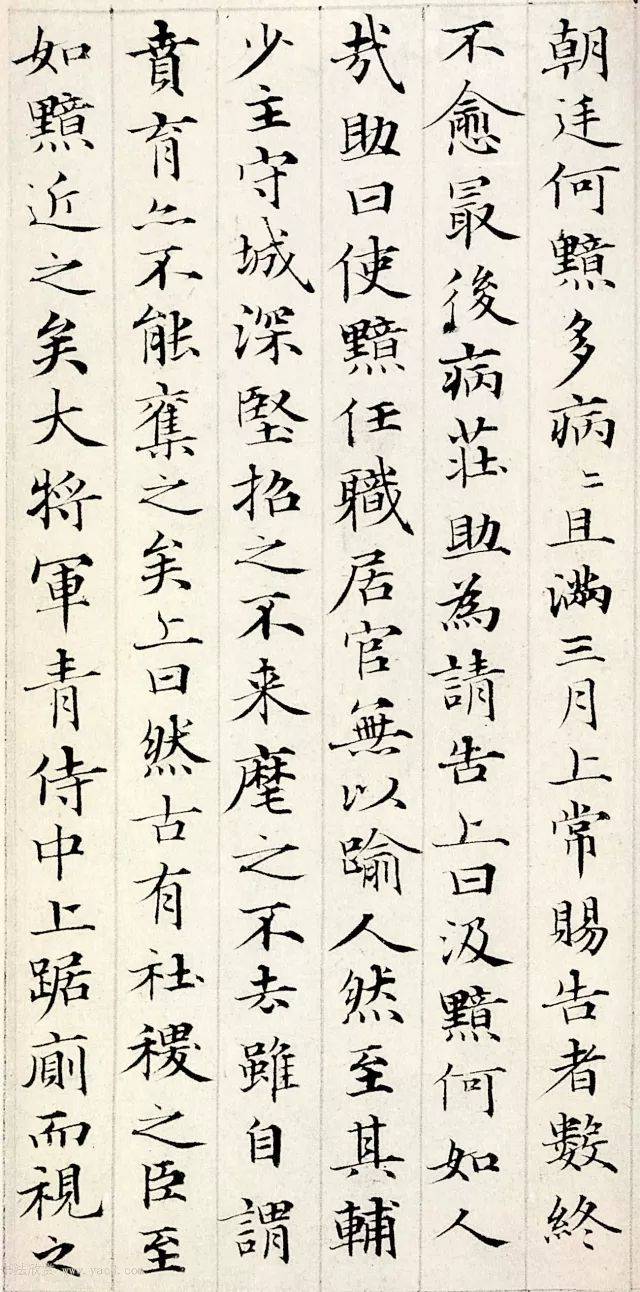 朝廷何黯多病〻且滿三月上常賜告者數終
不愈最後病莊助為請告上曰汲黯何如人
㦲助曰使黯任職居官無以踰人然至其輔
少主守城深堅招之不来麾之不去雖自謂
賁育亦不能奪之矣上曰然古有社稷之臣至
如黯近之矣大將軍青侍中上踞廁而視之